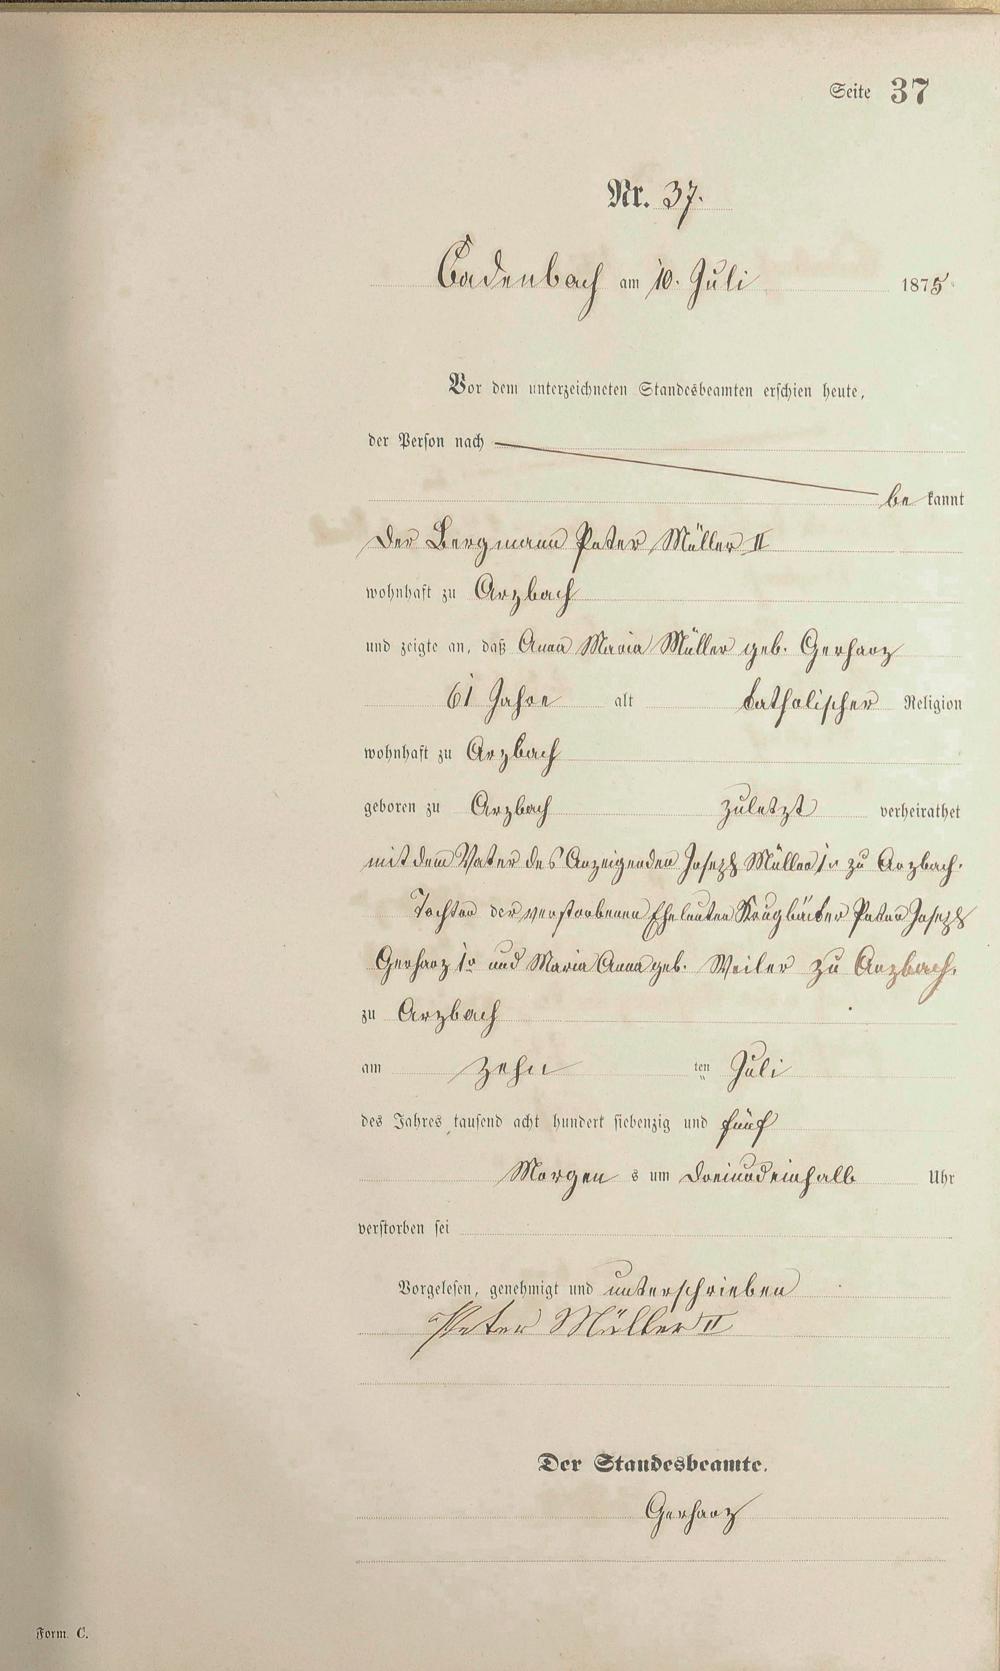 Seite 37
Nr. 37.
Cadenbach am 10. Juli 1875
Vor dem unterzeichneten Standesbeamten erschien heute,
der Person nach
be kannt
der Bergmann Peter Müller II
wohnhaft zu Arzbach
und zeigte an, daß Anna Maria Müller geb. Gerharz
61 Jahre alt katholischer Religion
wohnhaft zu Arzbach
geboren zu Arzbach zuletzt verheirathet
mit dem Vater des Anzeigenden Joseph Müller 1r zu Arzbach.
Tochter der verstorbenen Eheleuten Krugbäcker Peter Joseph
Gerharz 1r und Maria Anna geb. Weiler zu Arzbach.
zu Arzbach
am zehn ten Juli
des Jahres tausend acht hundert siebenzig und fünf
Morgen s um dreiundeinhalb Uhr
verstorben sei
Vorgelesen, genehmigt und unterschrieben
Peter Müller II
Der Standesbeamte.
Gerharz
Form. C.